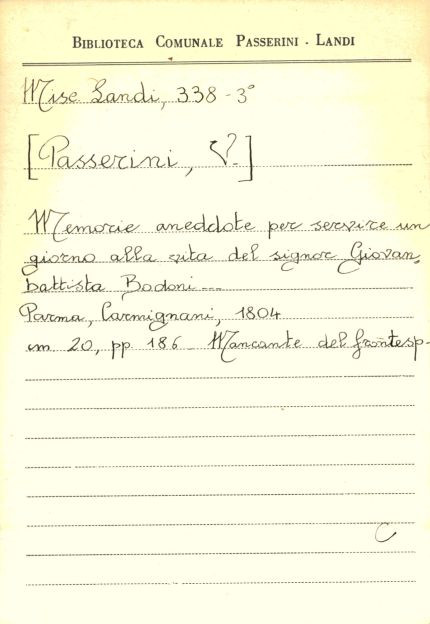 BIBLIOTECA COMUNALE PASSERINI - LANDI
Misc Landi, 338 - 3°
[Passerini, V.]
Memorie aneddote per servire un
giorno alla vita del signor Giovan,
battista Bodoni ...
Parma, Carmignani, 1804
cm 20, pp 186 - Mancante del frontesp.
C